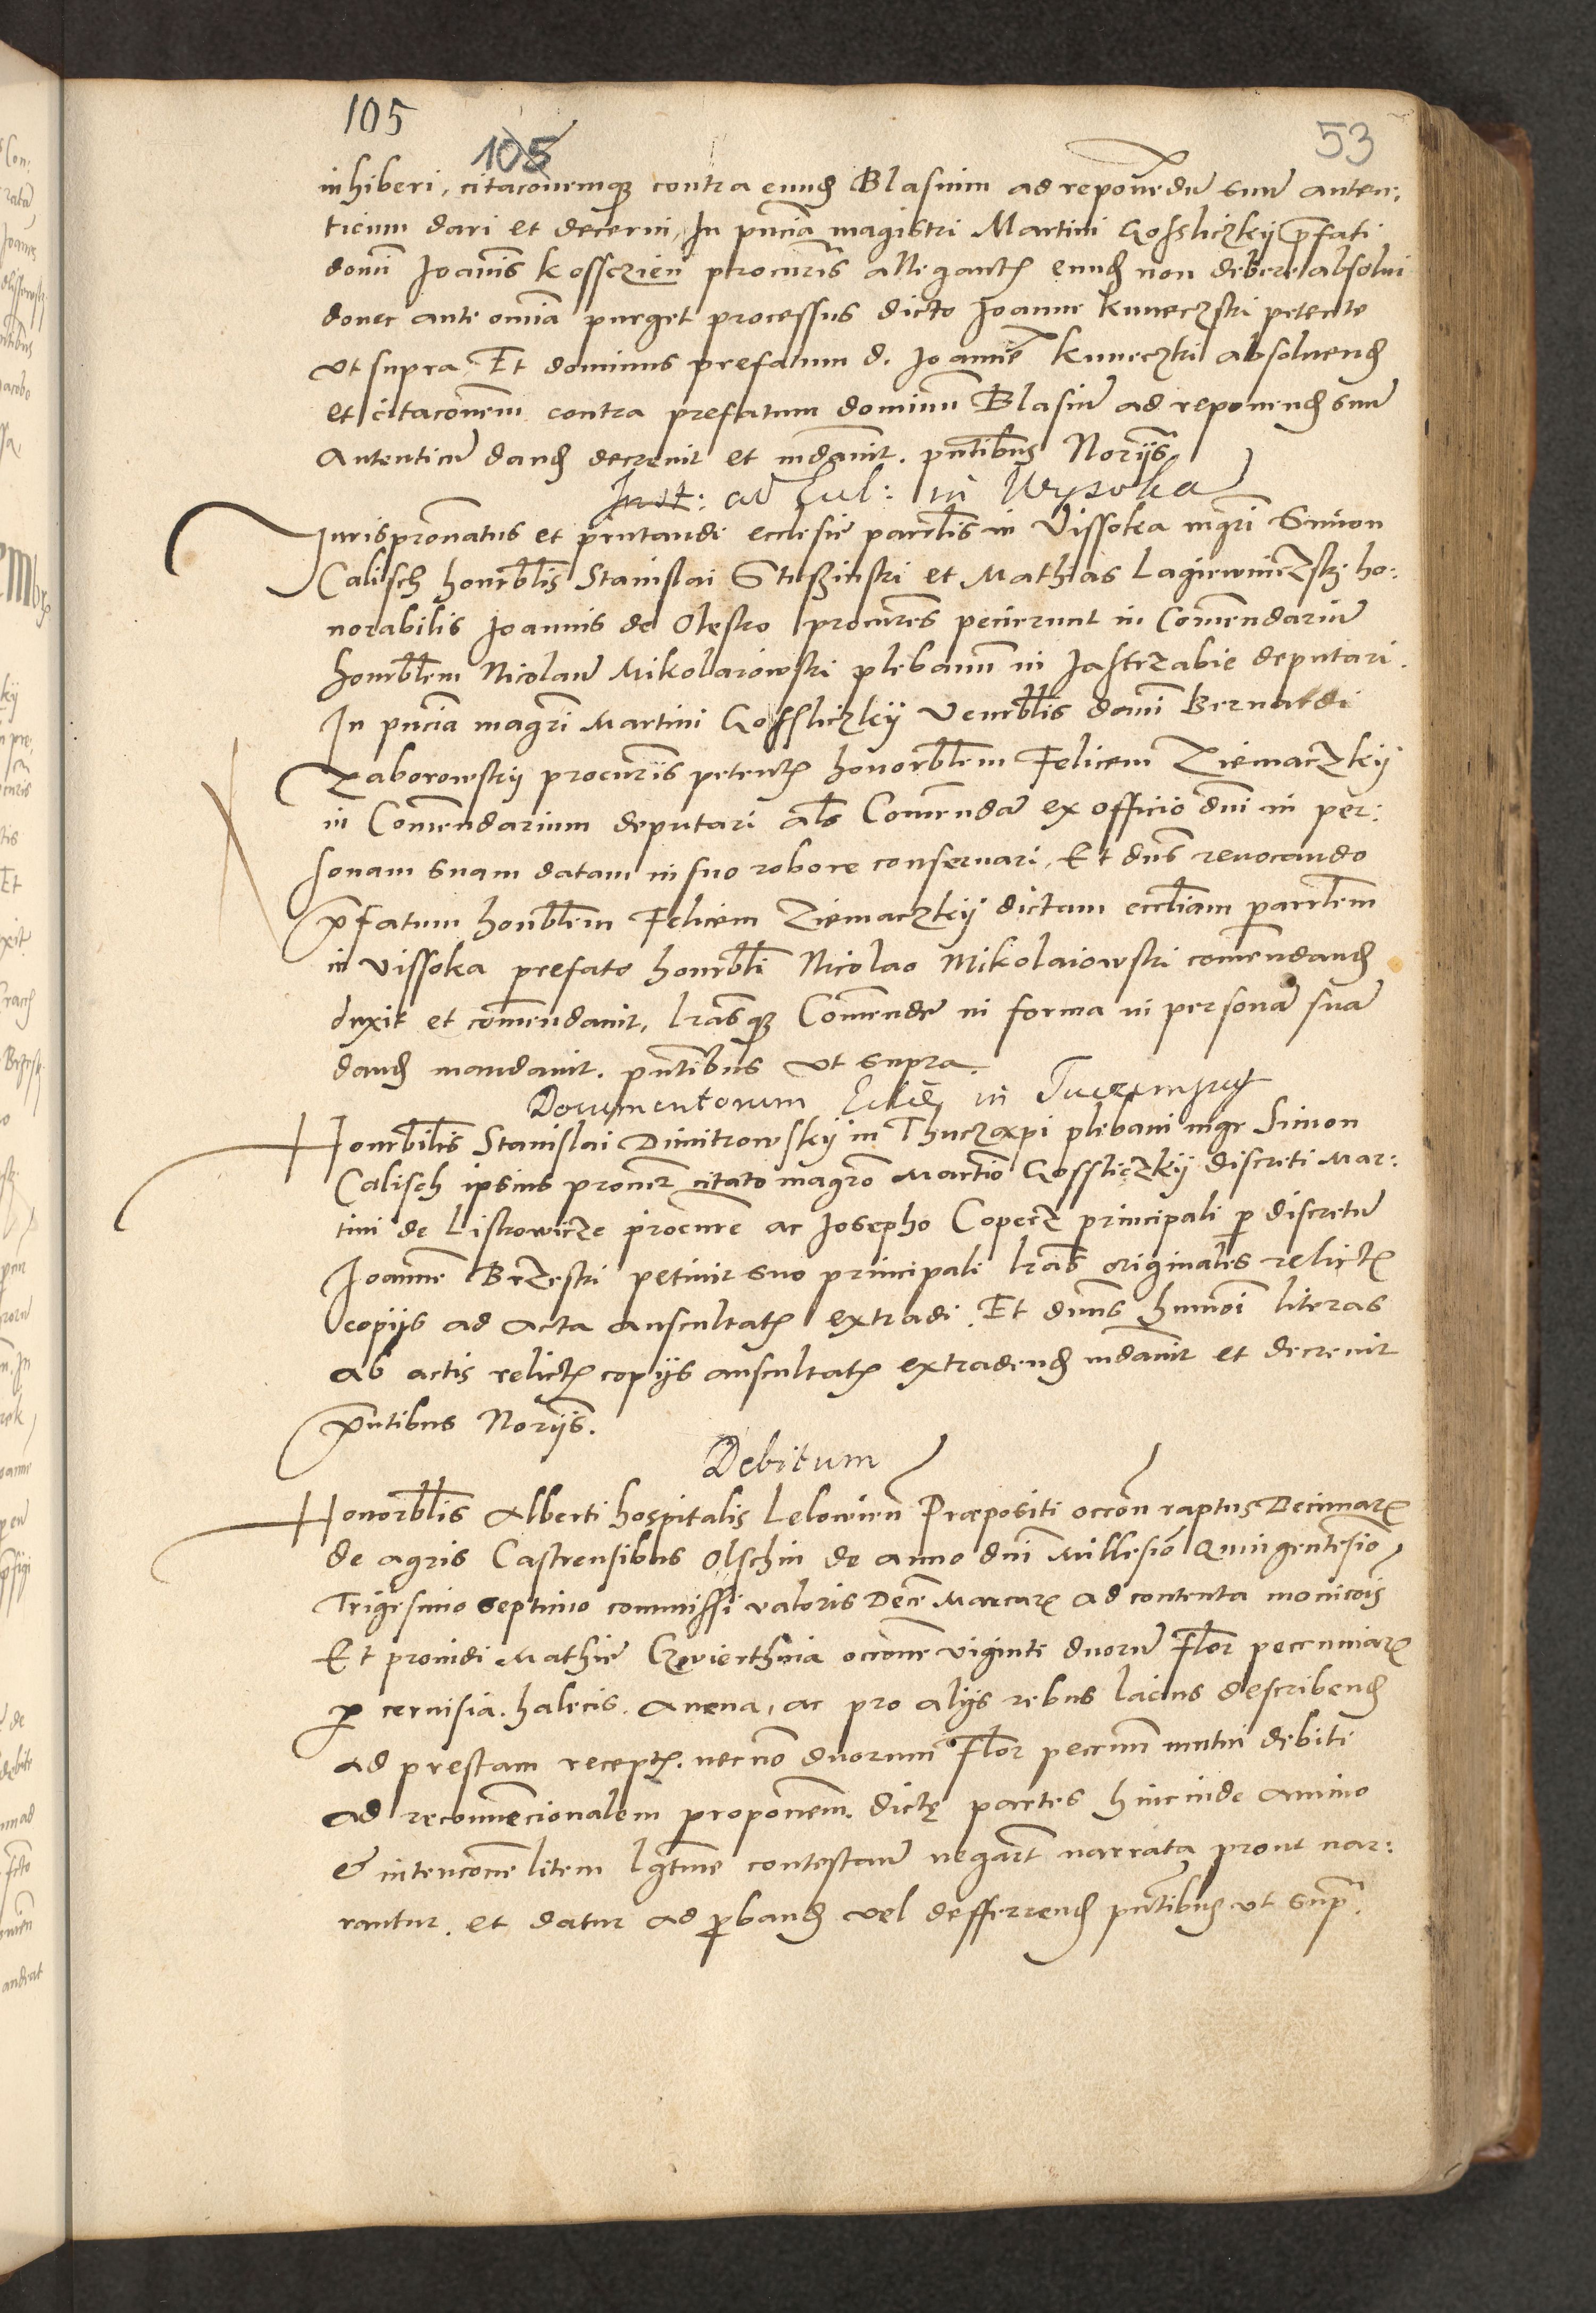 105
105
53
inhiberi, citaconemq3 contra eund Blasium ad reponedu suu auten:
ticum dari et decerni, In pncia magistri Martini Gosliczkij pfati
domi Joanis Kossczien procuris allegant eund non debere absolui
donec ante omia purget processus dicto Joanne Kuneczski petente
vt supra. Et dominus prefatum d. Joanne Kuneczki absoluend
et citaconem contra prefatum dominu Blasiu ad reponend suu
Autenticu dand decreuit et mdauit. pntibus Norijs
Inst: ad Eccl: in Wysoka
Jurispronatus et pntandi ecclesie parrlis in Vissoka mgri Simon
Calisch honrblis Stanislai et Mathias Lagiewniczskj ho:
norabilis Joannis de Olesko procures pecierunt in Comendariu
honrblem Nicolau Mikolaiowski plebanu in Jastrzabie deputari.
In pncia magri Martini Gossliczkij Venrblis domi Bernardi
Zaborowskij procuris petent honorblem Felicem Ziemaczkij
in Comendarium deputari als Comenda ex officio dni in per:
sonam suam datam in suo robore conseruari, Et dns reuocando
pfatum honblem Felicem Ziemaczkij dictam eccliam parrlem
in Vissoka prefato honrbli Nicolao Mikolaiowski comendand
duxit et comendauit, lrasq3 Comende in forma in persona sua
dand mandauit. pntibus vt supra.
Documentorum Eccle in Tuczempy
Honrbilis Stanislai Dimitrowskij in Thuczapi plebani mgr Simon
Calisch ipsius procur citato magro Martio Gossliczkij discreti Mar:
tini de Liskowicze procure ac Josepho Copecz principali p discretu
Joanne Brzeski petiuit suo principali lras originales relict
copijs ad acta auscultat extradi. Et dnus huiuoi literas
ab actis relict copijs auscultat extradend mdauit et decreuit
pntibus Norijs.
Debitum
Honorblis Alberti hospitalis Lelouien Præpositi occon raptus Decimar
de agris Castrensibus Olschin de anno dni Millesio Quingentesio
Trigesimo septimo commissi valoris Dece Marcar ad contenta monicois
Et prouidi Mathie occone viginti duoru Flor pecuniar
p ceruisia. halecis. Auena, ac pro alijs rebus lacius describend
ad prestam recept. necno duorum Flor pecun mutui debiti
ad reconuecionalem proponem. dictę partes hincinde animo
& intencone litem lgtme contestau negat narrata prout nar:
rantur. et datur ad pband vel defferrend pntibus vt supr.